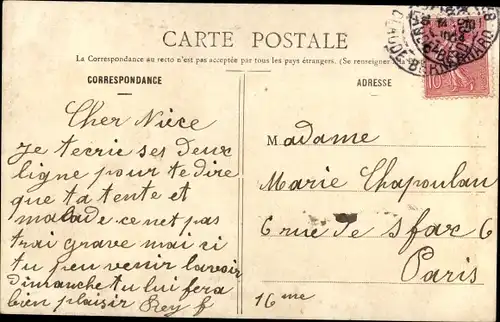 CARTE POSTALE
La Correspondance au recto n'est pas acceptée par tous les pays étrangers. (Se renseigner
CORRESPONDANCE
ADRESSE
Cher Niece
Je tecrie ses deux
ligne pour te dire
que ta tente et
malade ce net pas
trai grave mai si
tu peu venir lavoir
dimanche tu lui fera
bien plaisir Rey f
Madame
Marie Chapoulau
6 rue de Sfax 6
Paris
16me
10